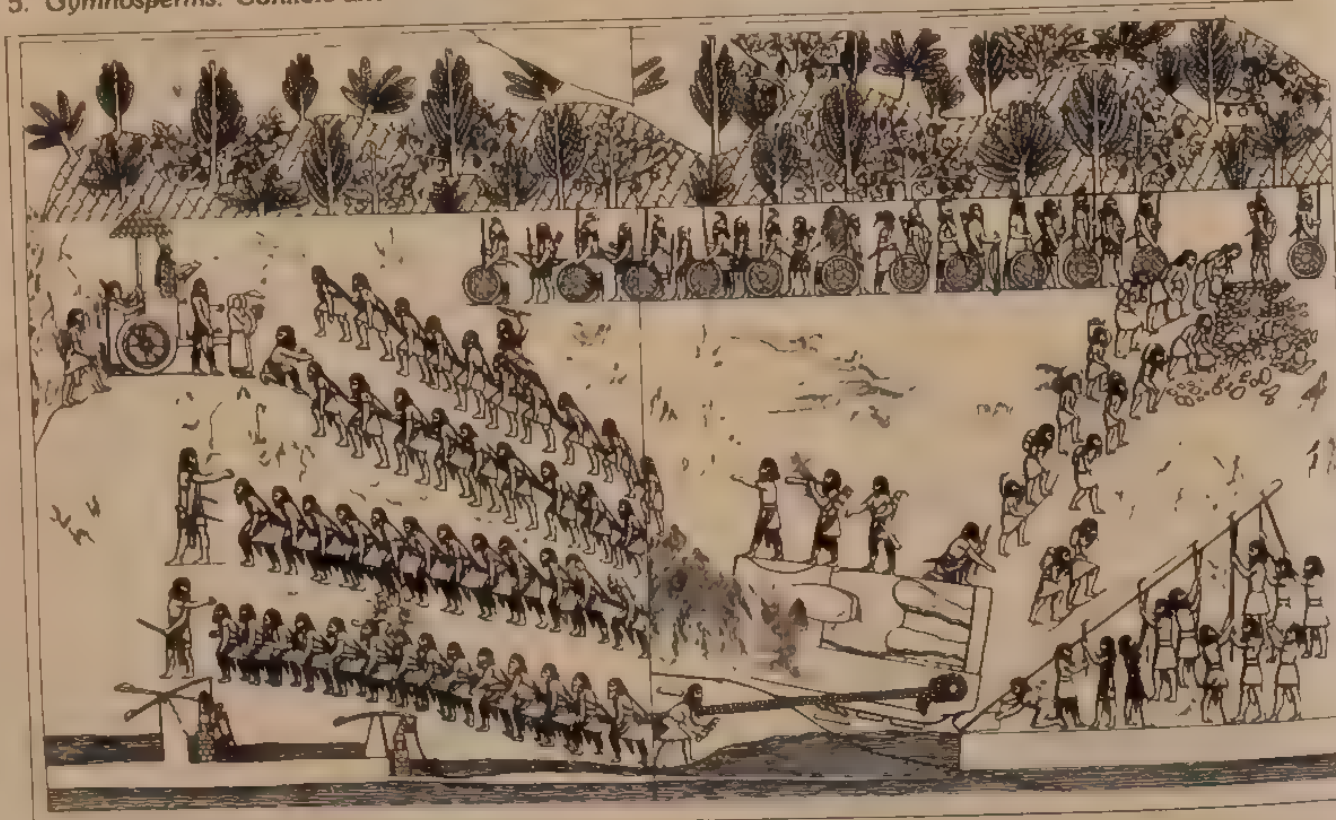 5. Gymnosperms: Conifers